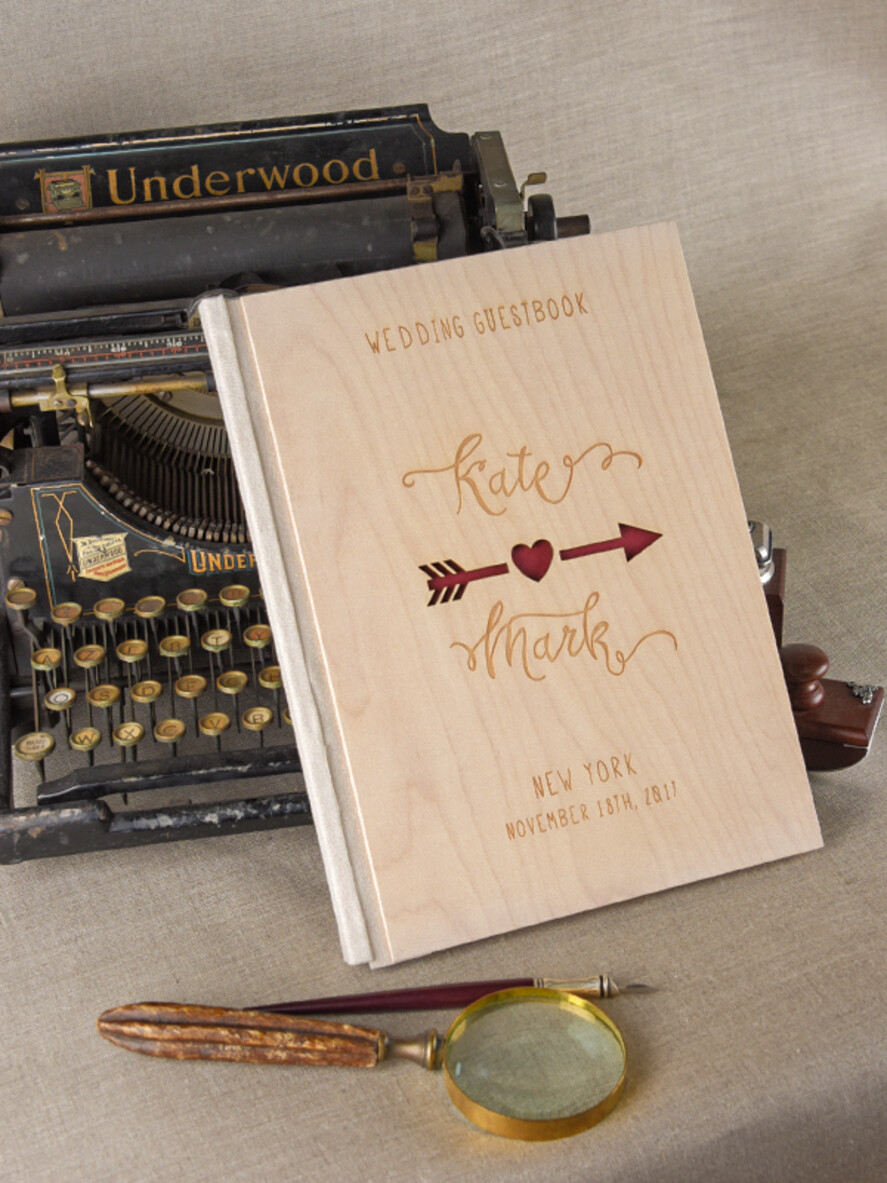 Underwood
WEDDING GUESTBOOK
kate
mark
NEW YORK
NOVEMBER 18TH, 2017
UNDER
A Z E R T Y
Q S D
W X C V B